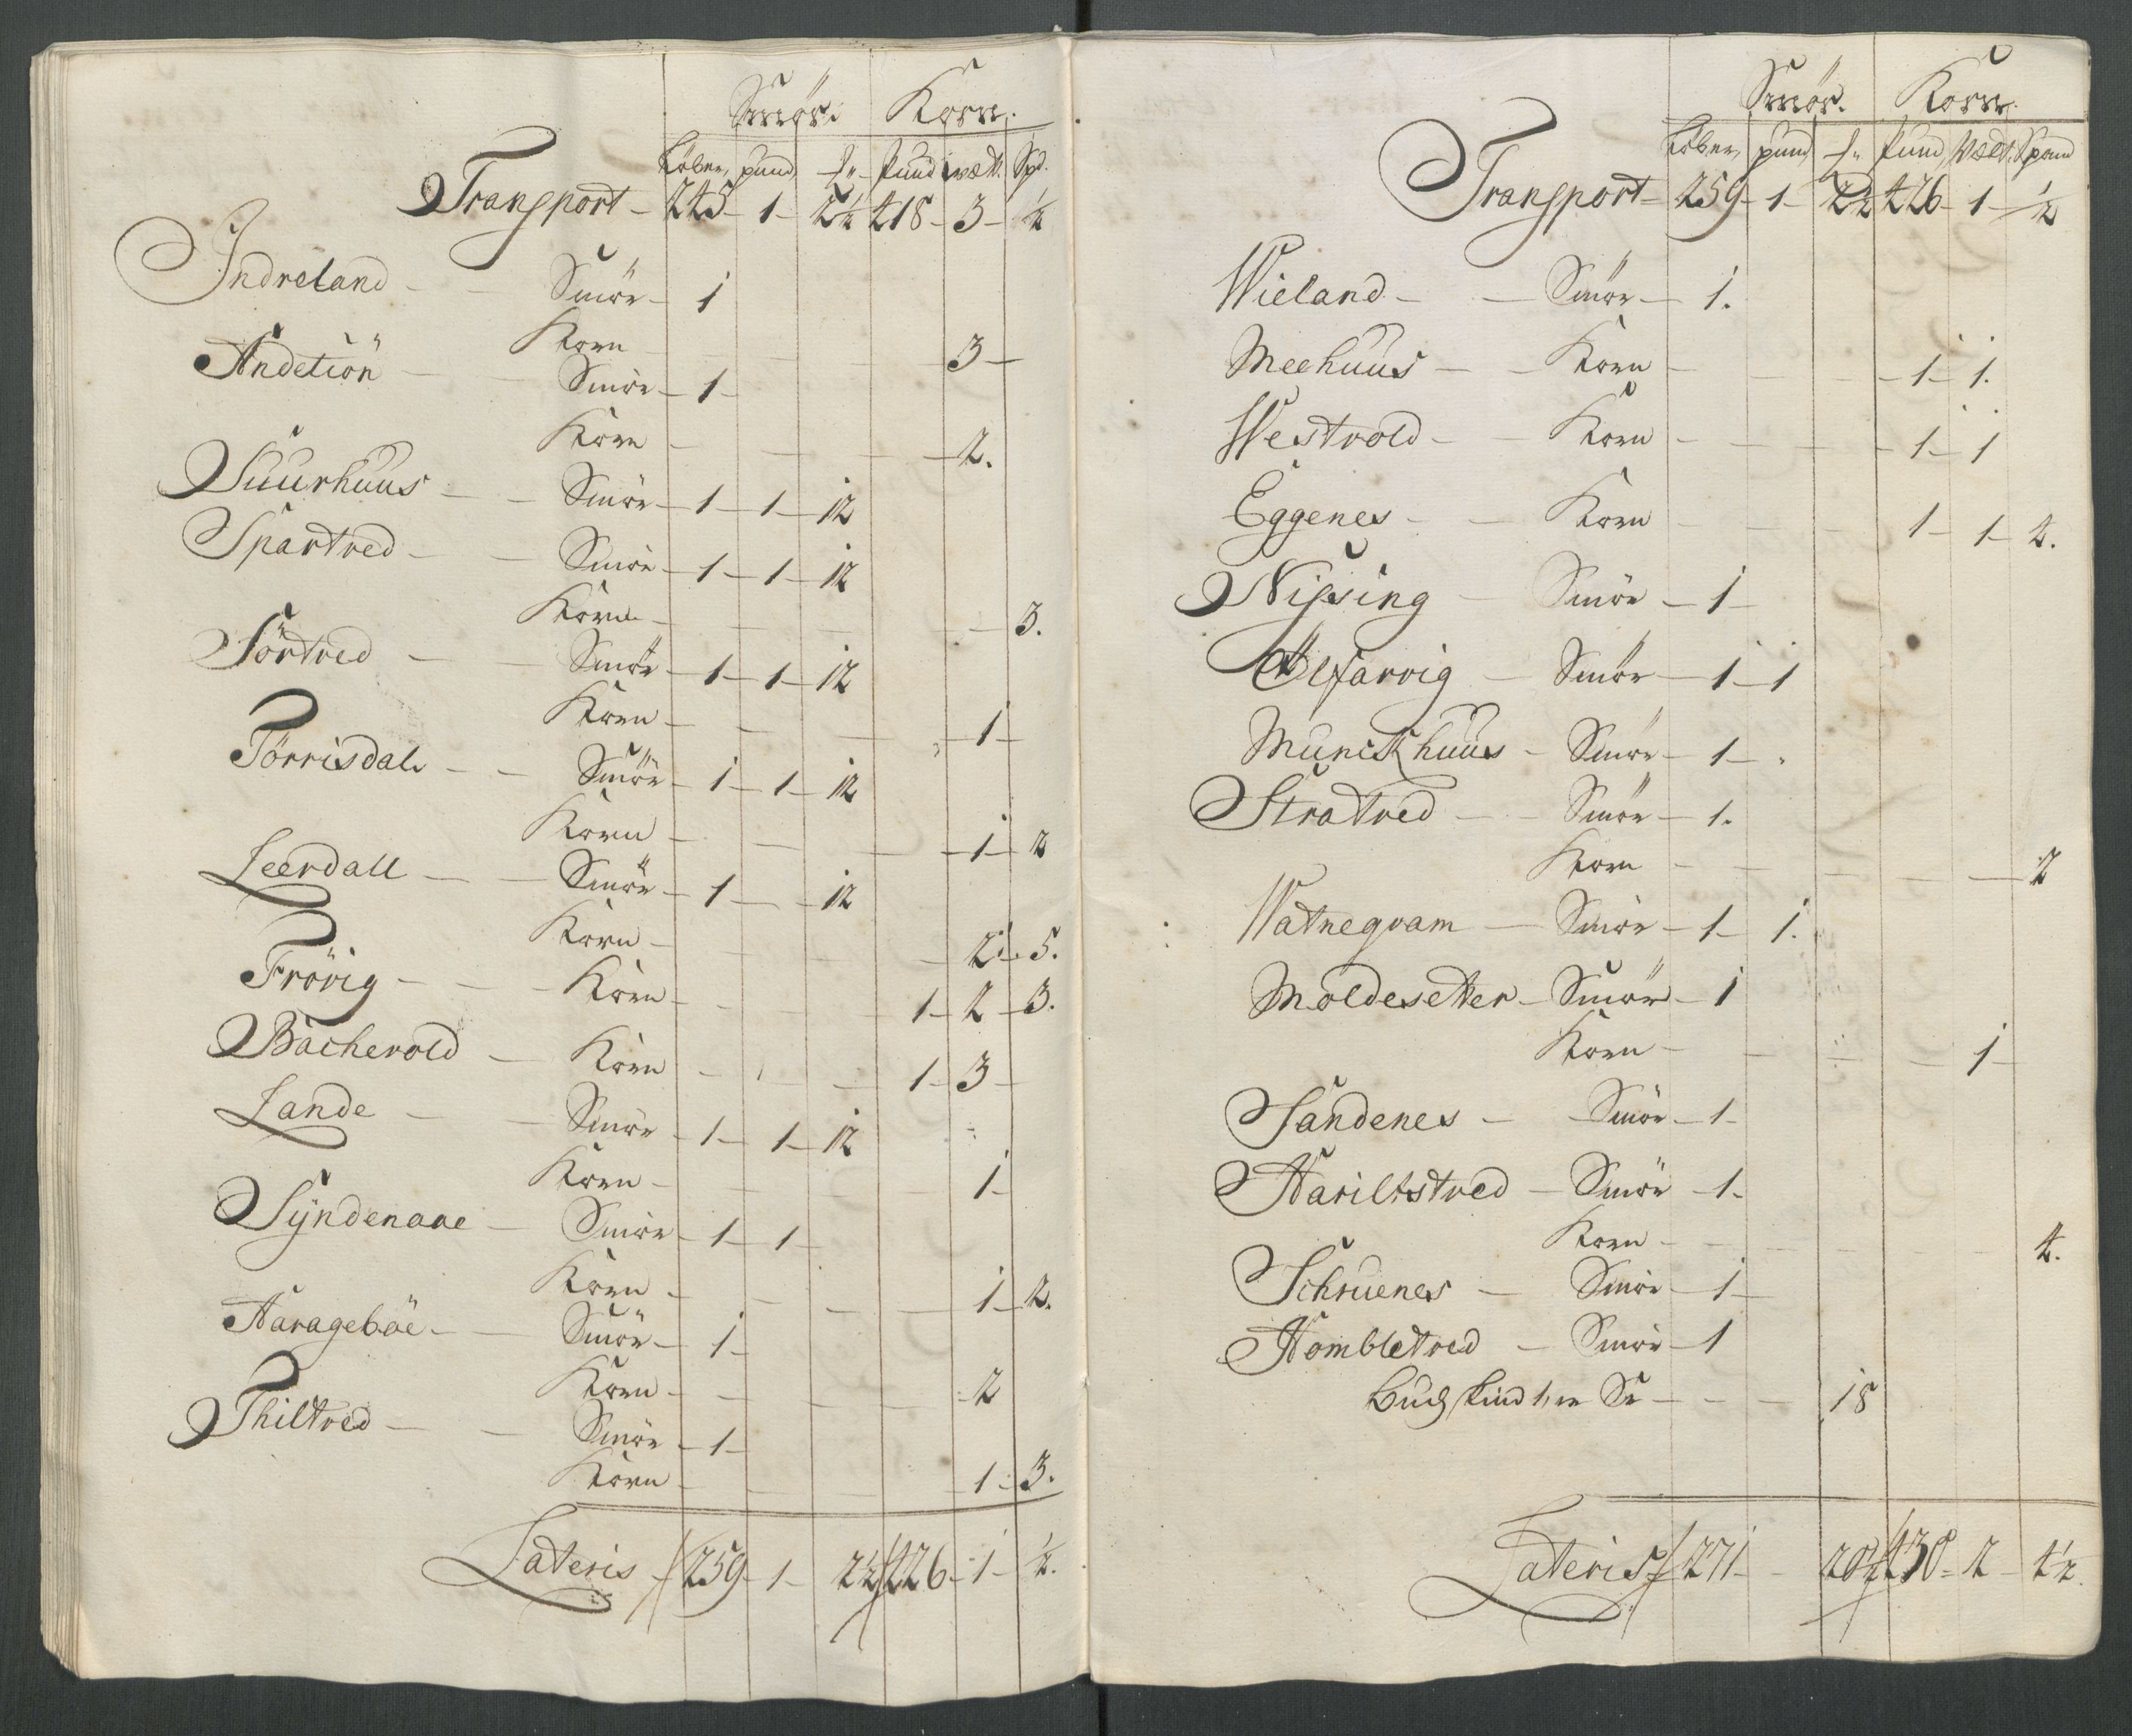 Smör. Korn.
Löber, pund, ℔ Pund wætt. Spd.
Transport - 245 - 1 - 2½ 418 - 3 - ½
Indreland - - Smör - 1
Korn - - - - 3 -
Andetiön - - Smör - 1 -
Korn - - - - 2.
Suurhuus - - Smör - 1 - 1 - 12
Spartved - - Smör - 1 - 1 - 12
Korn - - - - 3.
Törtved - - Smör - 1 - 1 - 12
Korn - - - - 1 -
Törrisdal - - Smör - 1 - 1 - 12
Korn - - - - 1 - 2
Leerdall - - Smör - 1 - - 12
Korn - - - - 2 - 5.
Frövig - - - Korn - - - - 1 - 2 - 3.
Bacherold - Korn - - - 1 - 3 -
Lande - - Smör - 1 - 1 - 12
Korn - - - - 1 -
Syndenaae - Smör - 1 - 1 -
Korn - - - - 1 - 2.
Harageböe - - Smör - 1 -
Korn - - - - 2
Thiltved - - Smör - 1 -
Korn - - - - 1 - 3.
Lateris - 259 - 1 - 2½ 426 - 1 - ½.
Smör. Korn.
Löber, pund, ℔ Pund, Wæt. Spand
Transport - 259 - 1 - 2½ 426 - 1 - ½
Wieland - - Smör - 1.
Meehuus - - Korn - - - - 1 - 1.
Westvold - - Korn - - - - 1 - 1
Eggenes - - Korn - - - 1 - 1 - 2.
Nissing - Smör - 1 -
Ølfarvig - Smör - 1 - 1
Munckhuus - Smör - 1 -
Stratved - - Smör - 1.
Korn - - - - - 2
Watneqvam - Smör - 1 - 1.
Moldesetter - Smör - 1
Korn - - - - 1 -
Sandenes - - Smör - 1 -
Hariltstved - Smör - 1 -
Korn - - - - - 4.
Schruenes - Smör - 1 -
Hombletved - Smör - 1
- - - 18
Lateris - 271 - - 20½ 430 - 2 - 4½.